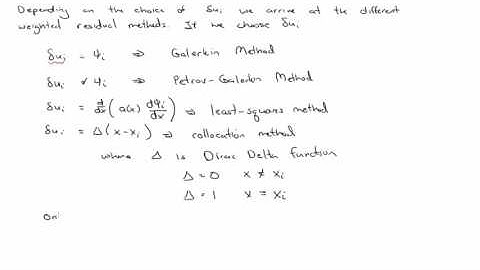 Depending on the choice of δui we arrive at the different
weighted residual methods. If we choose δui
δui = Ψi ⇒ Galerkin Method
δui ≠ Ψi ⇒ Petrov-Galerkin Method
δui = d/dx (a(x) dΨi/dx) ⇒ least-squares method
δui = Δ(x-xi) ⇒ collocation method
where Δ is Dirac Delta function
Δ = 0 x ≠ xi
Δ = 1 x = xi
On